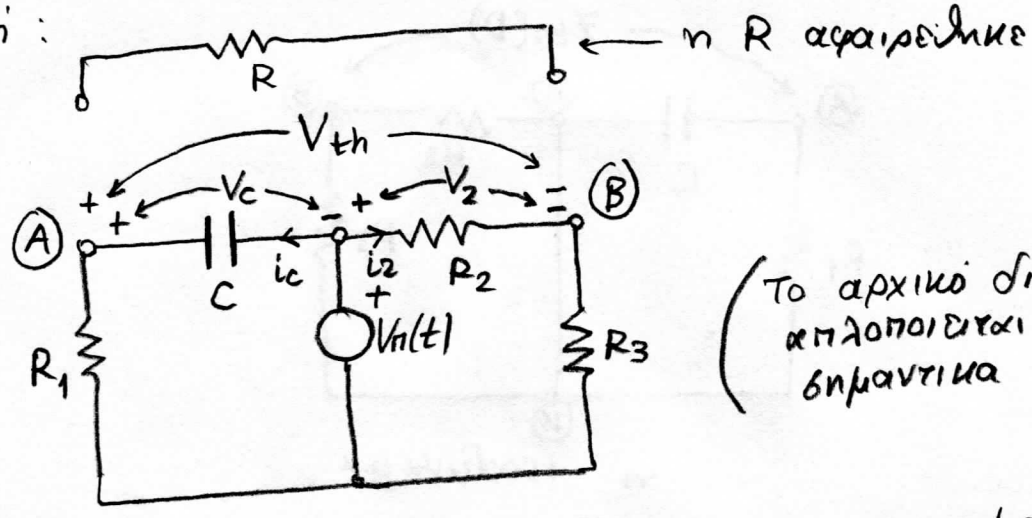 η R αφαιρέθηκε
R
Vth
+ + Vc - + V2 - -
A
B
ic
i2
C
R2
+
Vπ(t)
R1
R3
(Το αρχικό
απλοποιείται
σημαντικα